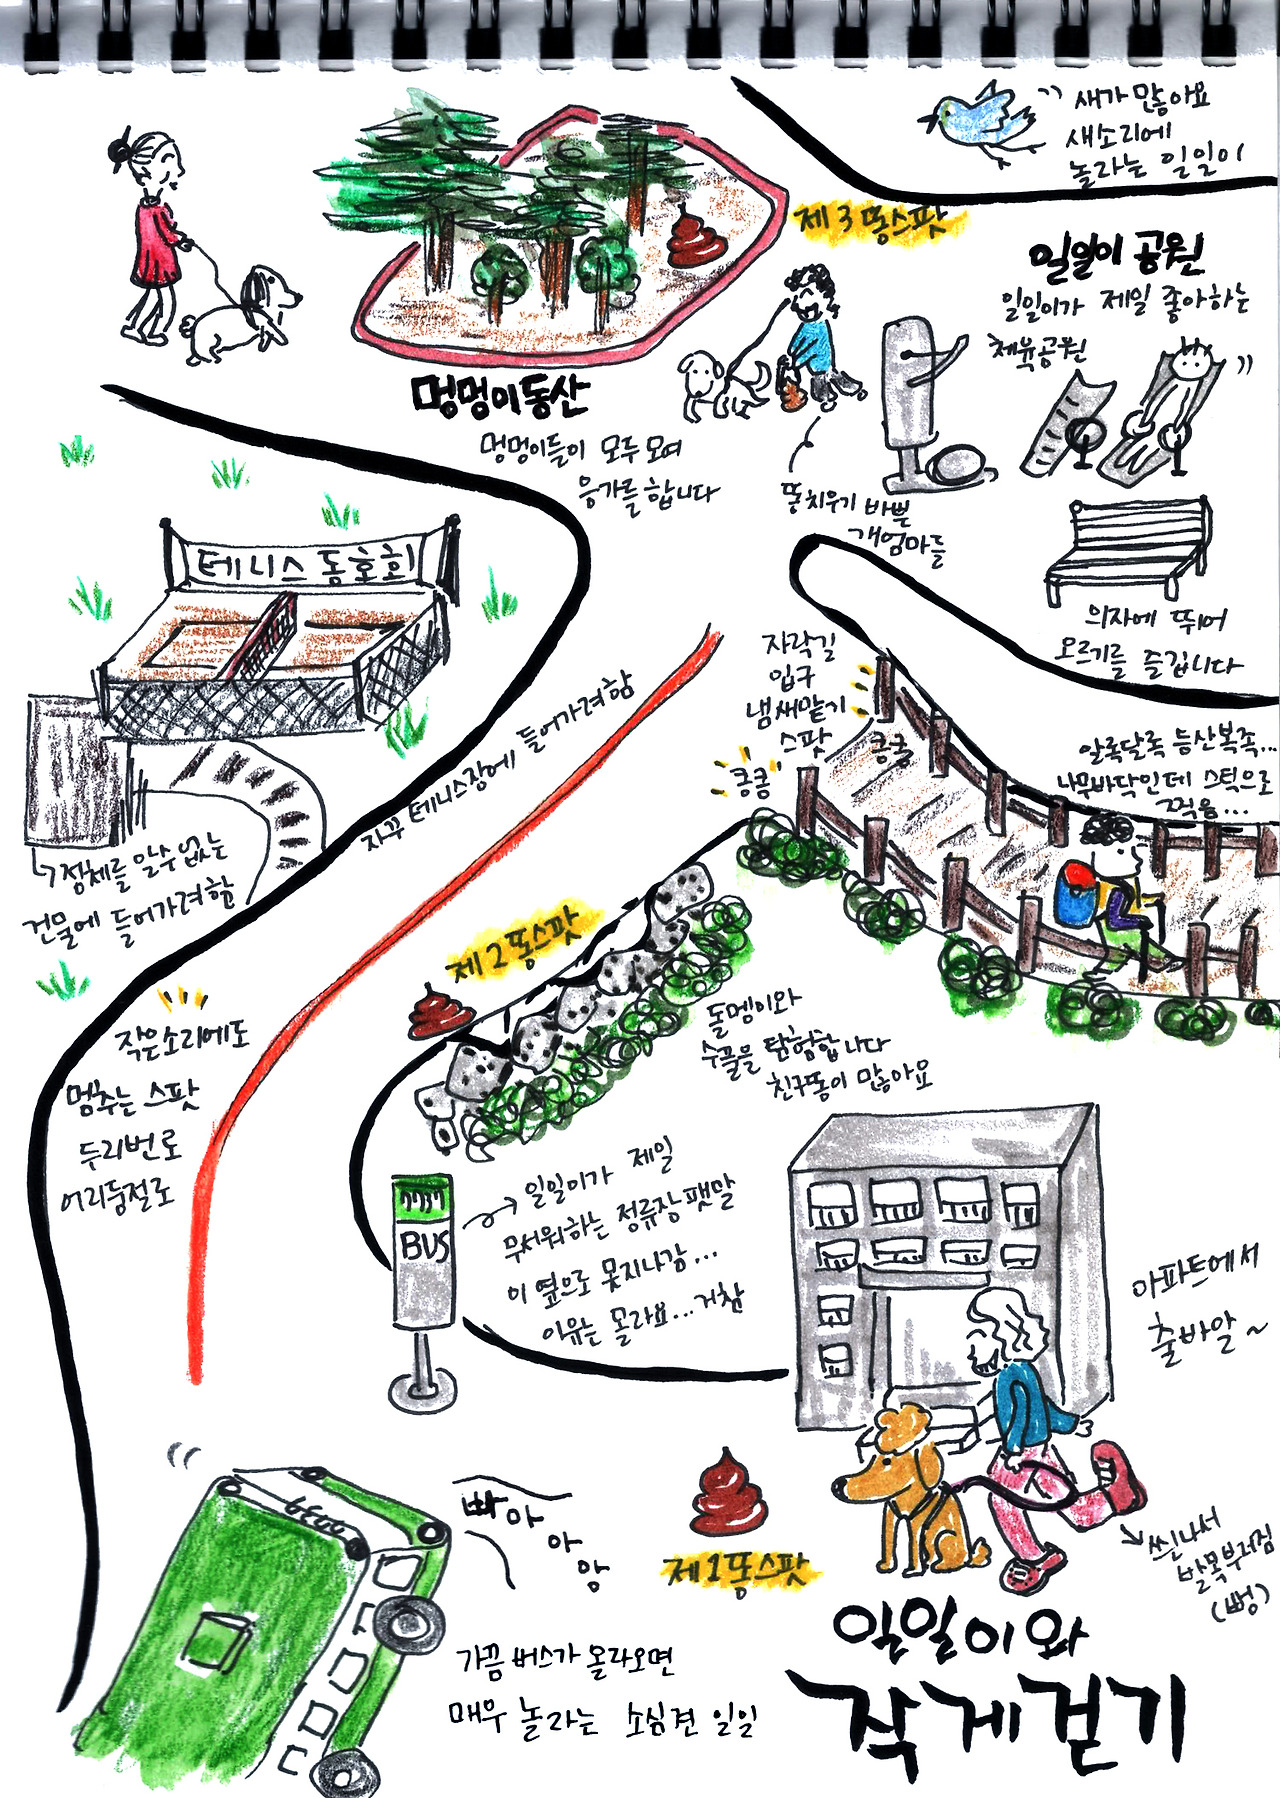 새가 많아요
새소리에
놀라는 일일이
제3똥스팟
일일이 공원
일일이가 제일 좋아하는
체육공원
멍멍이동산
멍멍이들이 모두 모여
응가를 합니다
똥치우기 바쁜
개엄마들
의자에 뛰어
오르기를 즐깁니다
테니스 동호회
자꾸 테니스장에 들어가려함
정체를 알수없는
건물에 들어가려함
자락길
입구
냄새맡기
스팟
킁킁
킁킁
알록달록 등산복족...
나무바닥인데 스틱으로
찍음...
제2똥스팟
돌멩이와
수풀을 탐험합니다
친구똥이 많아요
작은소리에도
멈추는 스팟
두리번로
어리둥절로
7737
BUS
일일이가 제일
무서워하는 정류장팻말
이 옆으로 못지나감...
이유는 몰라요...거참
아파트에서
출바알~
빠아아앙
제1똥스팟
씐나서
발목부러짐
(뻥)
가끔 버스가 올라오면
매우 놀라는 소심견 일일
일일이와
작게걷기